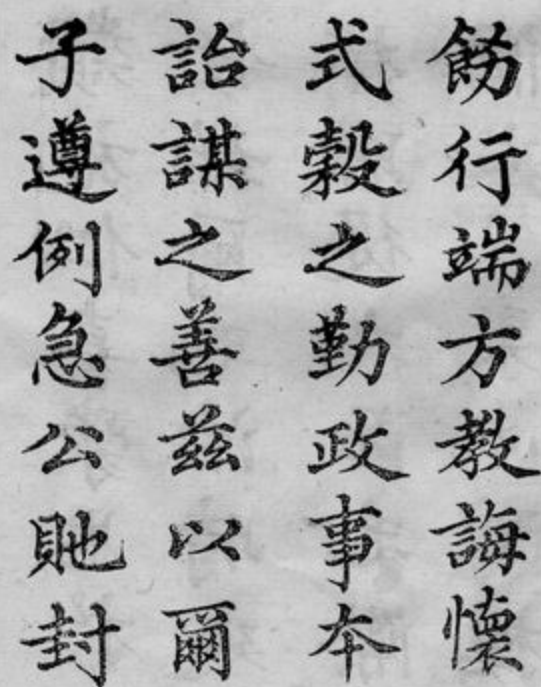 飭行端方教誨懷
式穀之勤政事本
詒謀之善茲以爾
子遵例急公貤封